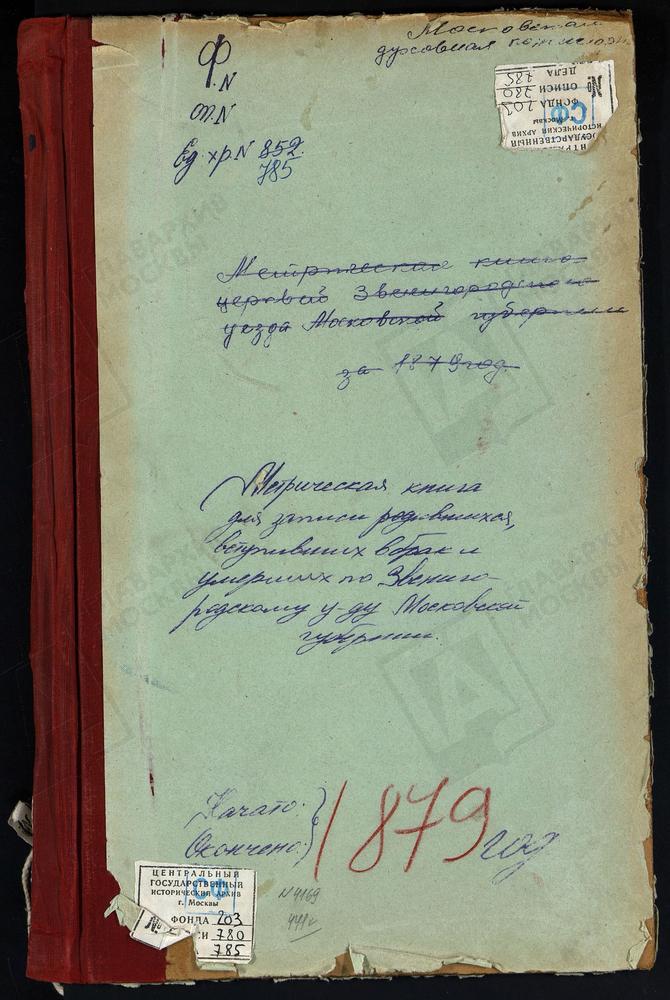 Московская
духовная консистория
Ф. N
оп. N
Ед. хр. N 852
785
№ ДЕЛА 785
ОПИСИ 780
ФОНДА 203
г. Москвы
ИСТОРИЧЕСКИЙ АРХИВ
ГОСУДАРСТВЕННЫЙ
СФ
Метрическая книга
церквей Звенигородского
уезда Московской губернии
за 1879 год.
Метрическая книга
для записи родившихся,
вступивших в брак и
умерших по Звениго-
родскому у-ду Московской
губернии.
Начато:
Окончено:
1879 год
ЦЕНТРАЛЬНЫЙ
ГОСУДАРСТВЕННЫЙ
ИСТОРИЧЕСКИЙ АРХИВ
г. Москвы
СФ
ФОНДА 203
№ СИ 780
785
N 4169